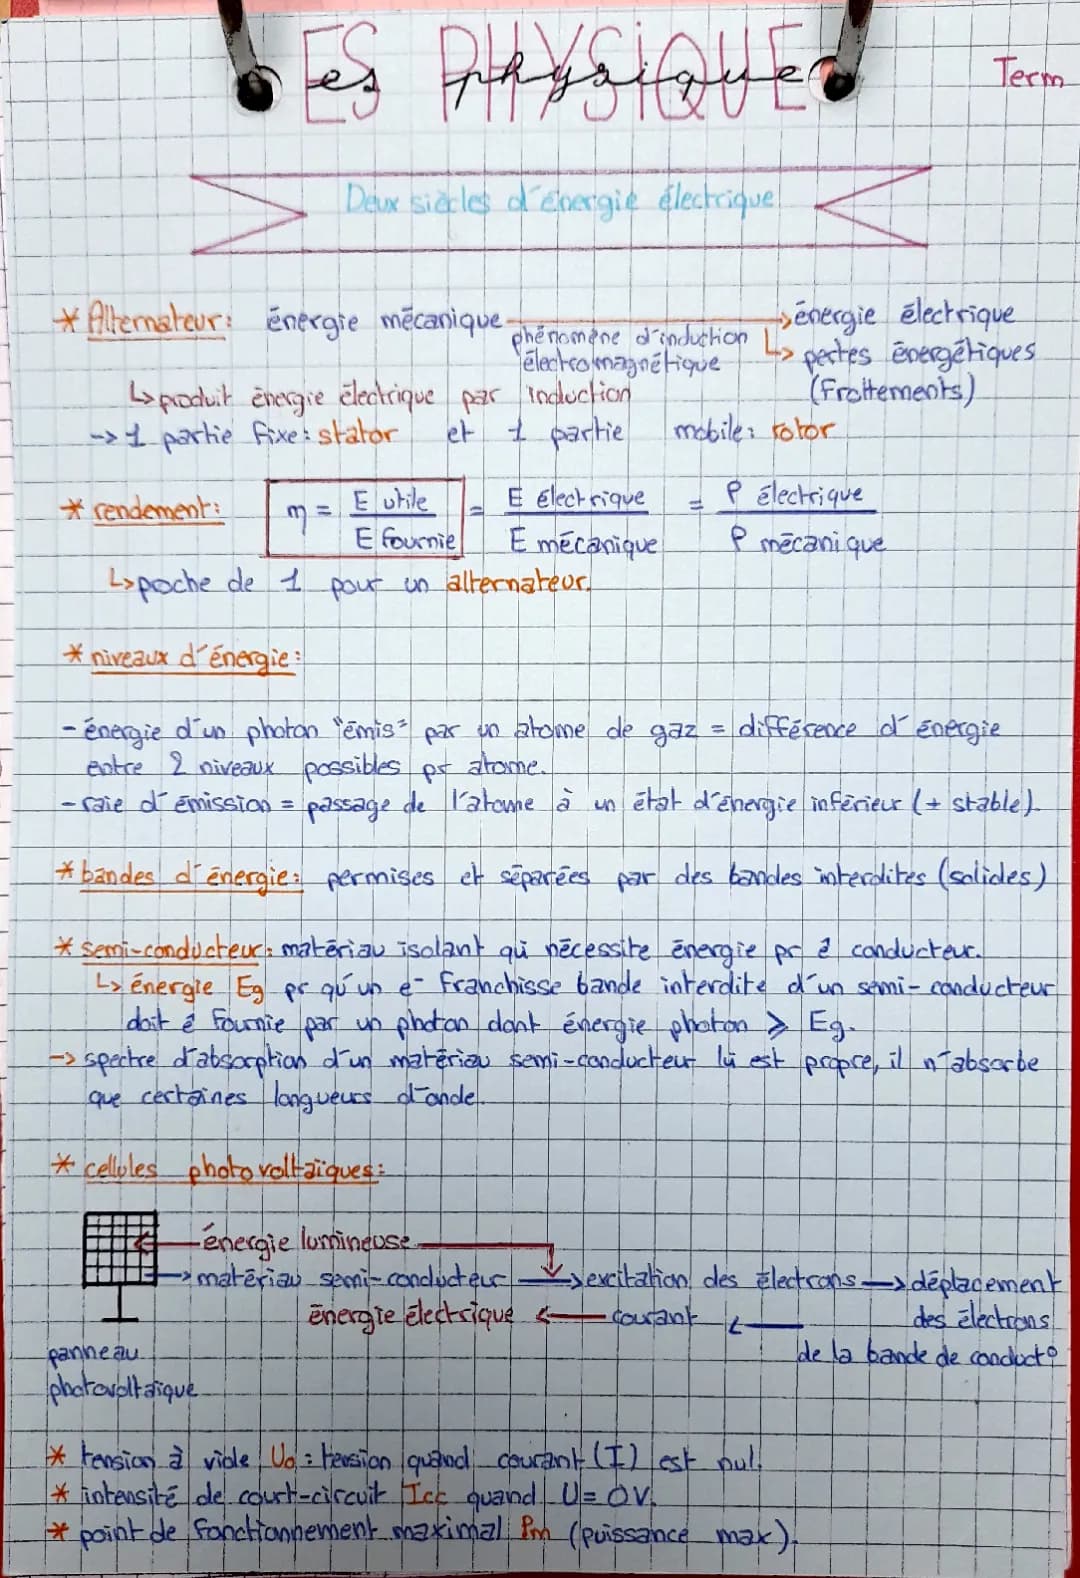 ES PHYSIQUE
es physique
Term
Deux siècles d'énergie électrique
* Alternateur: énergie mécanique → énergie électrique
phénomène d'induction ↳ pertes énergétiques
électromagnétique (frottements)
↳ produit énergie électrique par induction
-> 1 partie fixe: stator et 1 partie mobile: rotor
* rendement: η = E utile / E fournie = E électrique / E mécanique = P électrique / P mécanique
↳ proche de 1 pour un alternateur.
* niveaux d'énergie:
- énergie d'un photon "émis" par un atome de gaz = différence d'énergie
entre 2 niveaux possibles pr atome.
- raie d'émission = passage de l'atome à un état d'énergie inférieur (+ stable).
* bandes d'énergie: permises et séparées par des bandes interdites (solides)
* semi-conducteur: matériau isolant qui nécessite énergie pr ê conducteur.
↳ énergie Eg pr qu'un e- franchisse bande interdite d'un semi-conducteur
doit ê fournie par un photon dont énergie photon ⩾ Eg.
-> spectre d'absorption d'un matériau semi-conducteur lui est propre, il n'absorbe
que certaines longueurs d'onde.
* cellules photovoltaïques:
énergie lumineuse
→ matériau semi-conducteur → excitation des électrons → déplacement
énergie électrique ← courant ← des électrons
panneau de la bande de conduct°
photovoltaïque
* tension à vide U0 : tension quand courant (I) est nul.
* intensité de court-circuit Icc quand U = 0V.
* point de fonctionnement maximal Pm (puissance max).